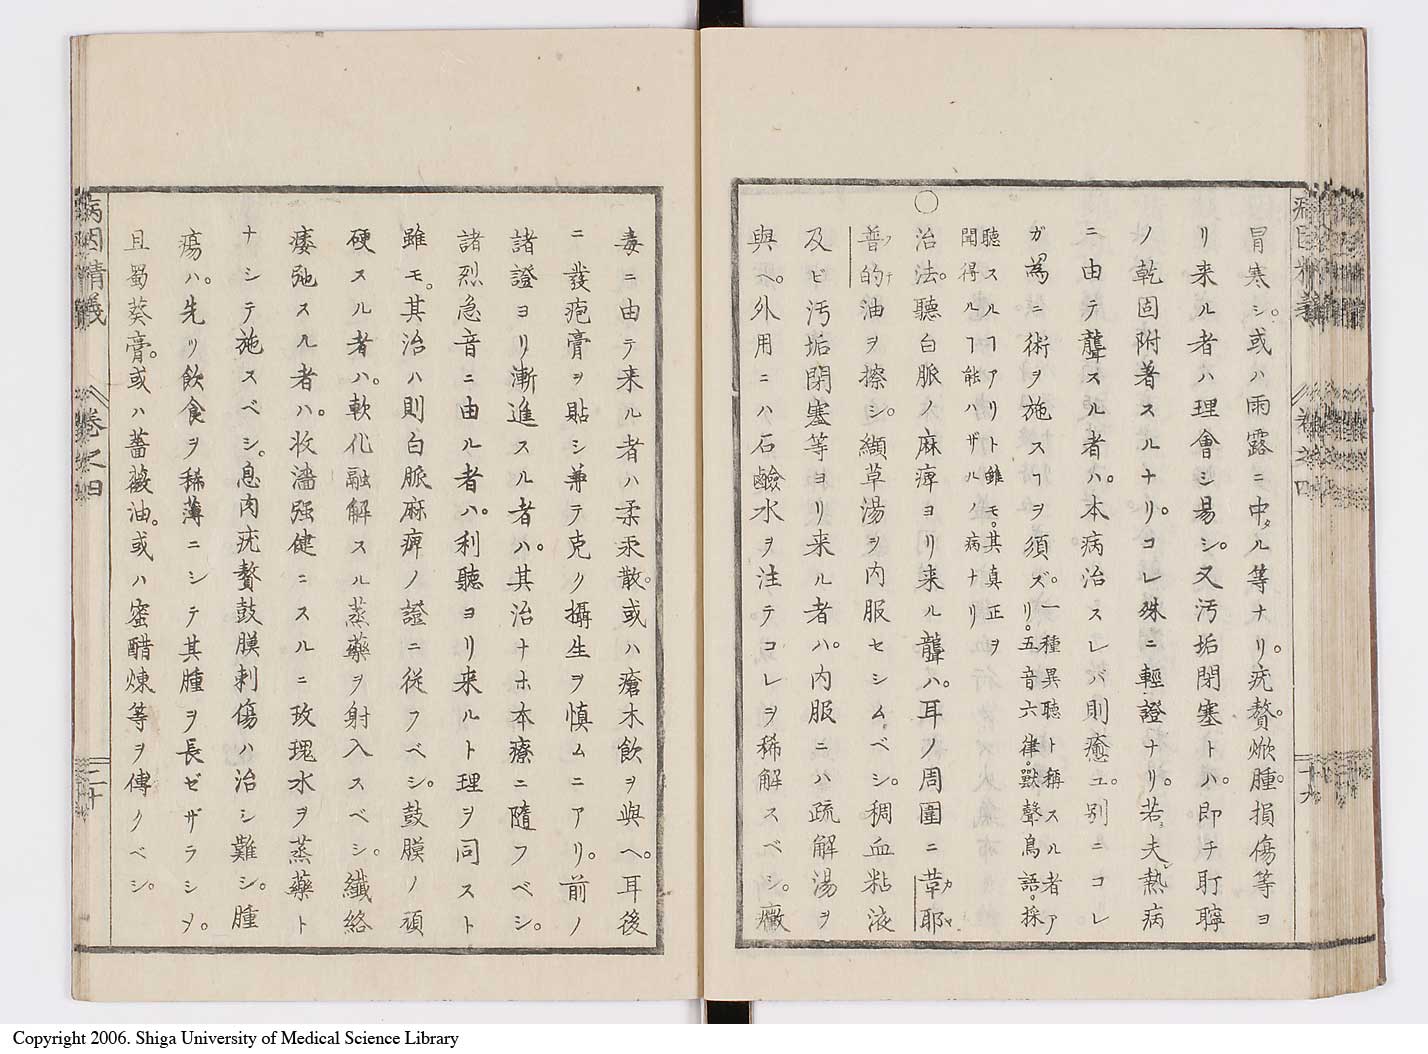 冒寒シ。或ハ雨露ニ中タル等ナリ。疣贅。焮腫。損傷等ヨ
リ来ル者ハ理會シ易シ。又汚垢閉塞トハ。即チ耵聹
ノ乾固附著スルナリ。コレ殊ニ輕證ナリ。若シ夫レ熱病
ニ由テ聾スル者ハ。本病治スレバ則癒ユ。別ニコレ
ガ為ニ術ヲ施スヿヲ須ズ。一種異聽ト稱スル者アリ。五音六律。獸聲鳥語。採
聽スルヿアリト雖モ。其真正ヲ聞得ルヿ能ハザルノ病ナリ
○治法。聽白脈ノ麻痺ヨリ来ル聾ハ。耳ノ周圍ニ葷耶
普的油ヲ擦シ。纈草湯ヲ内服セシムベシ。稠血粘液
及ビ汚垢閉塞等ヨリ来ル者ハ。内服ニハ疏解湯ヲ
與ヘ。外用ニハ石鹼水ヲ注テコレヲ稀解スベシ。黴
毒ニ由テ来ル者ハ柔汞散。或ハ瘡木飲ヲ與ヘ。耳後
ニ發疱膏ヲ貼シ兼テ克ク攝生ヲ慎ムニアリ。前ノ
諸證ヨリ漸進スル者ハ。其治ナホ本療ニ隨フベシ。
諸烈急音ニ由ル者ハ。利聽ヨリ来ルト理ヲ同スト
雖モ。其治ハ則白脈麻痺ノ證ニ従フベシ。鼓膜ノ頑
硬スル者ハ。軟化融解スル蒸藥ヲ射入スベシ。纎絡
痿弛スル者ハ。收濇强健ニスルニ玫瑰水ヲ蒸藥ト
ナシテ施スベシ。息肉疣贅鼓膜刺傷ハ治シ難シ。腫
瘍ハ。先ツ飲食ヲ稀薄ニシテ其腫ヲ長ゼザラシヲ。
且蜀葵膏。或ハ薔薇油。或ハ蜜醋煉等ヲ傅クベシ。
病因精義
卷之四
二十